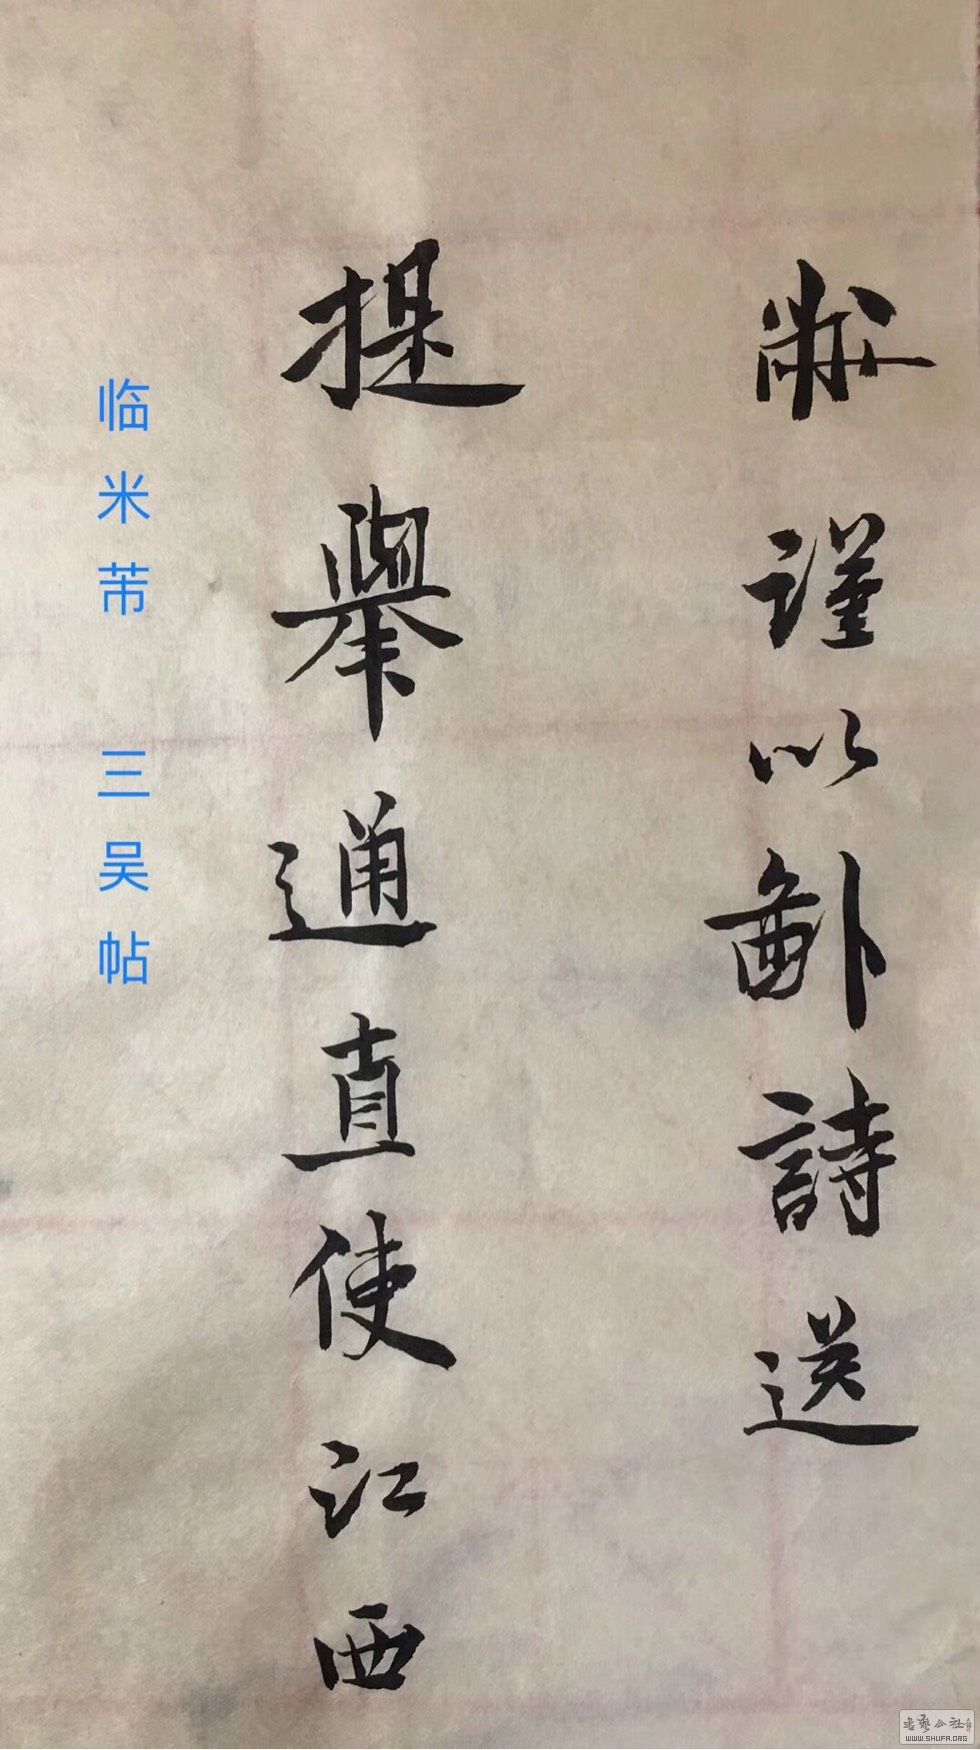 黻謹以鄙詩送
提舉通直使江西
临米芾 三吴帖
書藝公社
WWW.SHUFA.ORG